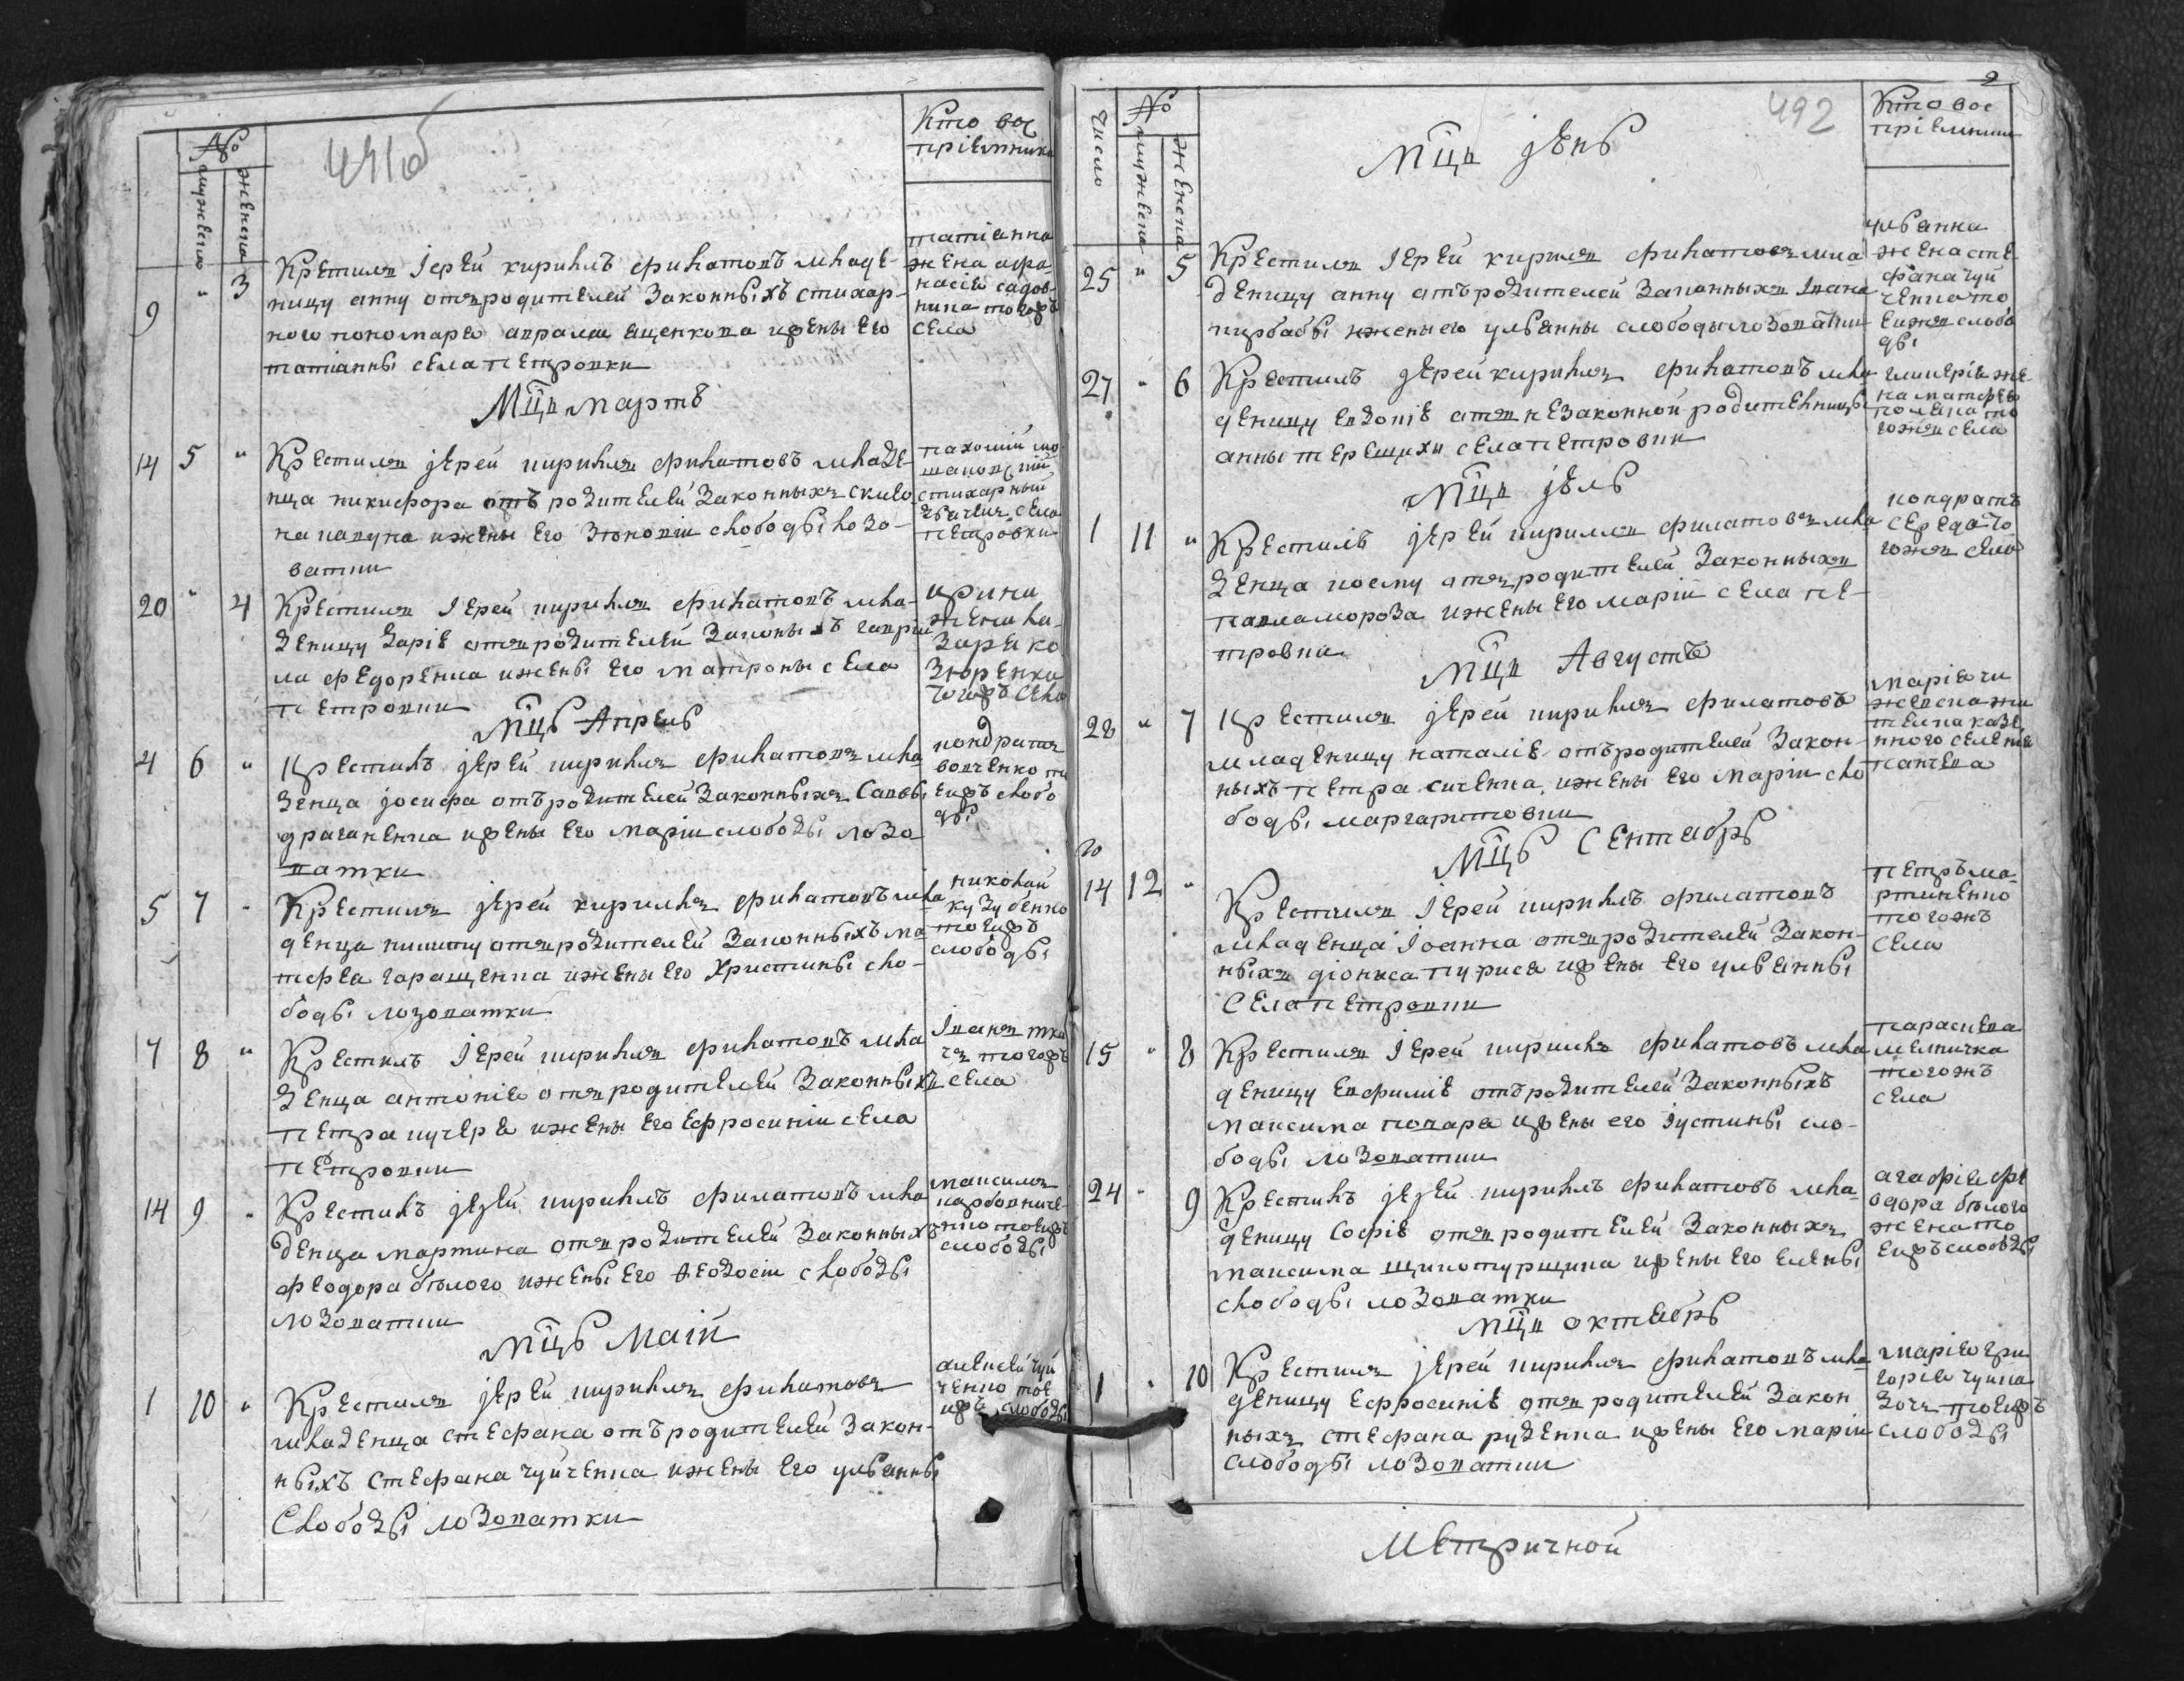 491об
№
мужеска
женска
Кто вос
пріемники
9 " 3 Крестилъ Іерей кирилъ филатовъ младе-
ницу анну отъ родителей Законныхъ стихар-
ного пономаря аврама ященкова и жены его
татіанны села петровки
татіанна
жена афа
насія садов
ника тогожъ
села
Мцъ мартъ
14 5 " Крестилъ јерей кирилъ филатовъ младе-
нца никифора отъ родителей Законныхъ
и жены его слободы лозо-
ватки
пахомій
стихарный
села
петровки
20 " 4 Крестилъ Іерей кирилъ филатовъ мла-
деницу дарію отъ родителей Законыхъ гаврии
ла федоренка и жены его матроны села
петровки
ирина
жена ла-
заря ко
зюренка
тогожъ села
Мцъ Апрель
4 6 " Крестилъ јерей кирилъ филатовъ мла
денца јосифа отъ родителей Законныхъ Саввы
драганенка и жены его маріи слободы лозо
ватки
кондратъ
вовченко то
еижъ слобо
ды
5 7 - Крестилъ јерей кирилъ филатовъ мла
денца никиту отъ родителей Законныхъ ма
тфея гаращенка и жены его Христины сло-
боды лозоватки
николай
кузубенко
тоеижъ
слободы
7 8 " Крестилъ Іерей кирилъ филатовъ мла
денца антонія отъ родителей Законныхъ
петра кучеря и жены его Ефросиніи села
петровки
Іванъ тка
чъ тогожъ
села
14 9 " Крестилъ јерей кирилъ филатовъ мла
денца мартина отъ родителей Законныхъ
феодора белого и жены его феодосіи слободы
лозоватки
максимъ
тоеижъ
слободы
Мцъ Маій
1 10 " Крестилъ јерей кирилъ филатовъ
младенца стефана отъ родителей Закон-
ныхъ Стефана чуйченка и жены его ульянны
Слободы лозоватки
алексей чуй
ченко тое
ижъ слободы
2
492
Число
№
мужеска
женска
Кто вос
пріемники
Мцъ јюнь
25 " 5 Крестилъ Іерей кирилъ филатовъ мла
деницу анну отъ родителей Законныхъ Івана
и жены его ульянны слободы лозоватки
ульянна
жена сте
фана чуй
ченка то
еижъ слобо
ды
27 " 6 Крестилъ јерей кирилъ филатовъ мла
деницу Евдокію отъ незаконной родителницы
анны терещихи села петровки
гликерія же
на матфея
того
гожъ села
Мцъ јюль
1 11 " Крестилъ јерей кириллъ филатовъ мла
денца козму отъ родителей Законныхъ
павла мороза и жены его маріи села пе-
тровки
кондратъ
середа то
гожъ села
Мцъ Августъ
28 " 7 Крестилъ јерей кирилъ филатовъ
младеницу наталію отъ родителей Закон-
ныхъ петра сиченка и жены его маріи сло
боды маргаритовки
марія
жи
телка казе
нного селенія
панчева
Мцъ Сентябрь
14 12 " Крестилъ Іерей кирилъ филатовъ
младенца Іоанна отъ родителей Закон-
ныхъ діониса пуриса и жены его ульянны
Села петровки
петръ ма-
ртиненко
тогожъ
села
15 " 8 Крестилъ Іерей кирилъ филатовъ мла
деницу Евфимію отъ родителей Законныхъ
максима поваря и жены его јустины сло-
боды лозоватки
параскева
мелничка
тогожъ
села
24 " 9 Крестилъ јерей кирилъ филатовъ мла
деницу Софію отъ родителей Законныхъ
максима и жены его елены
слободы лозоватки
агафія фе
одора белого
жена то
еижъ слободы
Мцъ октябрь
1 " 10 Крестилъ јерей кирилъ филатовъ мла
деницу Ефросинію отъ родителей Закон
ныхъ стефана руденка и жены его маріи
слободы лозоватки
марія гри
горія
тоеижъ
слободы
Метричной